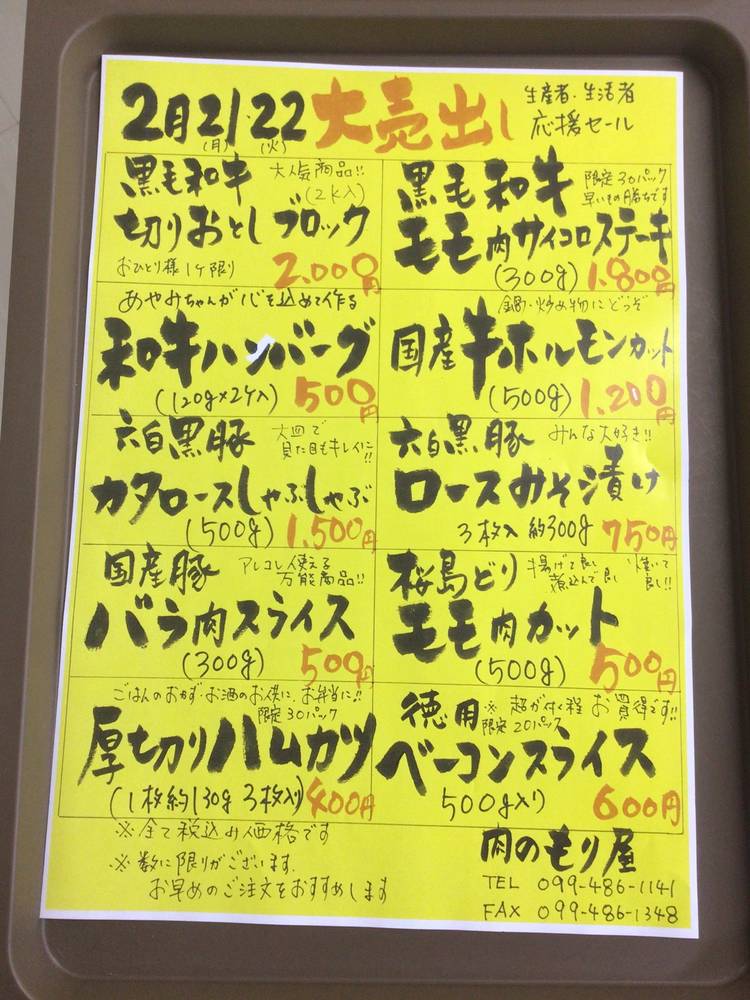 2月21・22大売出し
(月) (火)
生産者・生活者
応援セール
黒毛和牛
大人気商品!!
(2K入)
切りおとしブロック
おひとり様1ヶ限り
2.000円
黒毛和牛
限定30パック
早いもの勝ちです
モモ肉サイコロステーキ
(300g) 1.800円
あやみちゃんが心を込めて作る
和牛ハンバーグ
(120g×2ケ入) 500円
鍋・炒め物にどうぞ
国産牛ホルモンカット
(500g) 1.200円
六白黒豚
大皿で
見た目もキレイに!!
カタロースしゃぶしゃぶ
(500g) 1.500円
六白黒豚
みんな大好き!!
ロースみそ漬け
3枚入 約300g 750円
国産豚
アレコレ使える
万能商品!!
バラ肉スライス
(300g) 500円
桜島どり
揚げて良し 焼いて
煮込んで良し 良し!!
モモ肉カット
(500g) 500円
ごはんのおかず・お酒のお供に、お弁当に!!
限定30パック
厚切りハムカツ
(1枚約130g 3枚入り) 400円
徳用
※超が付く程 お買得です!!
限定20パック
ベーコンスライス
500g入り 600円
※全て税込み価格です
※数に限りがございます。
お早めのご注文をおすすめします
肉のもり屋
TEL 099-486-1141
FAX 099-486-1348